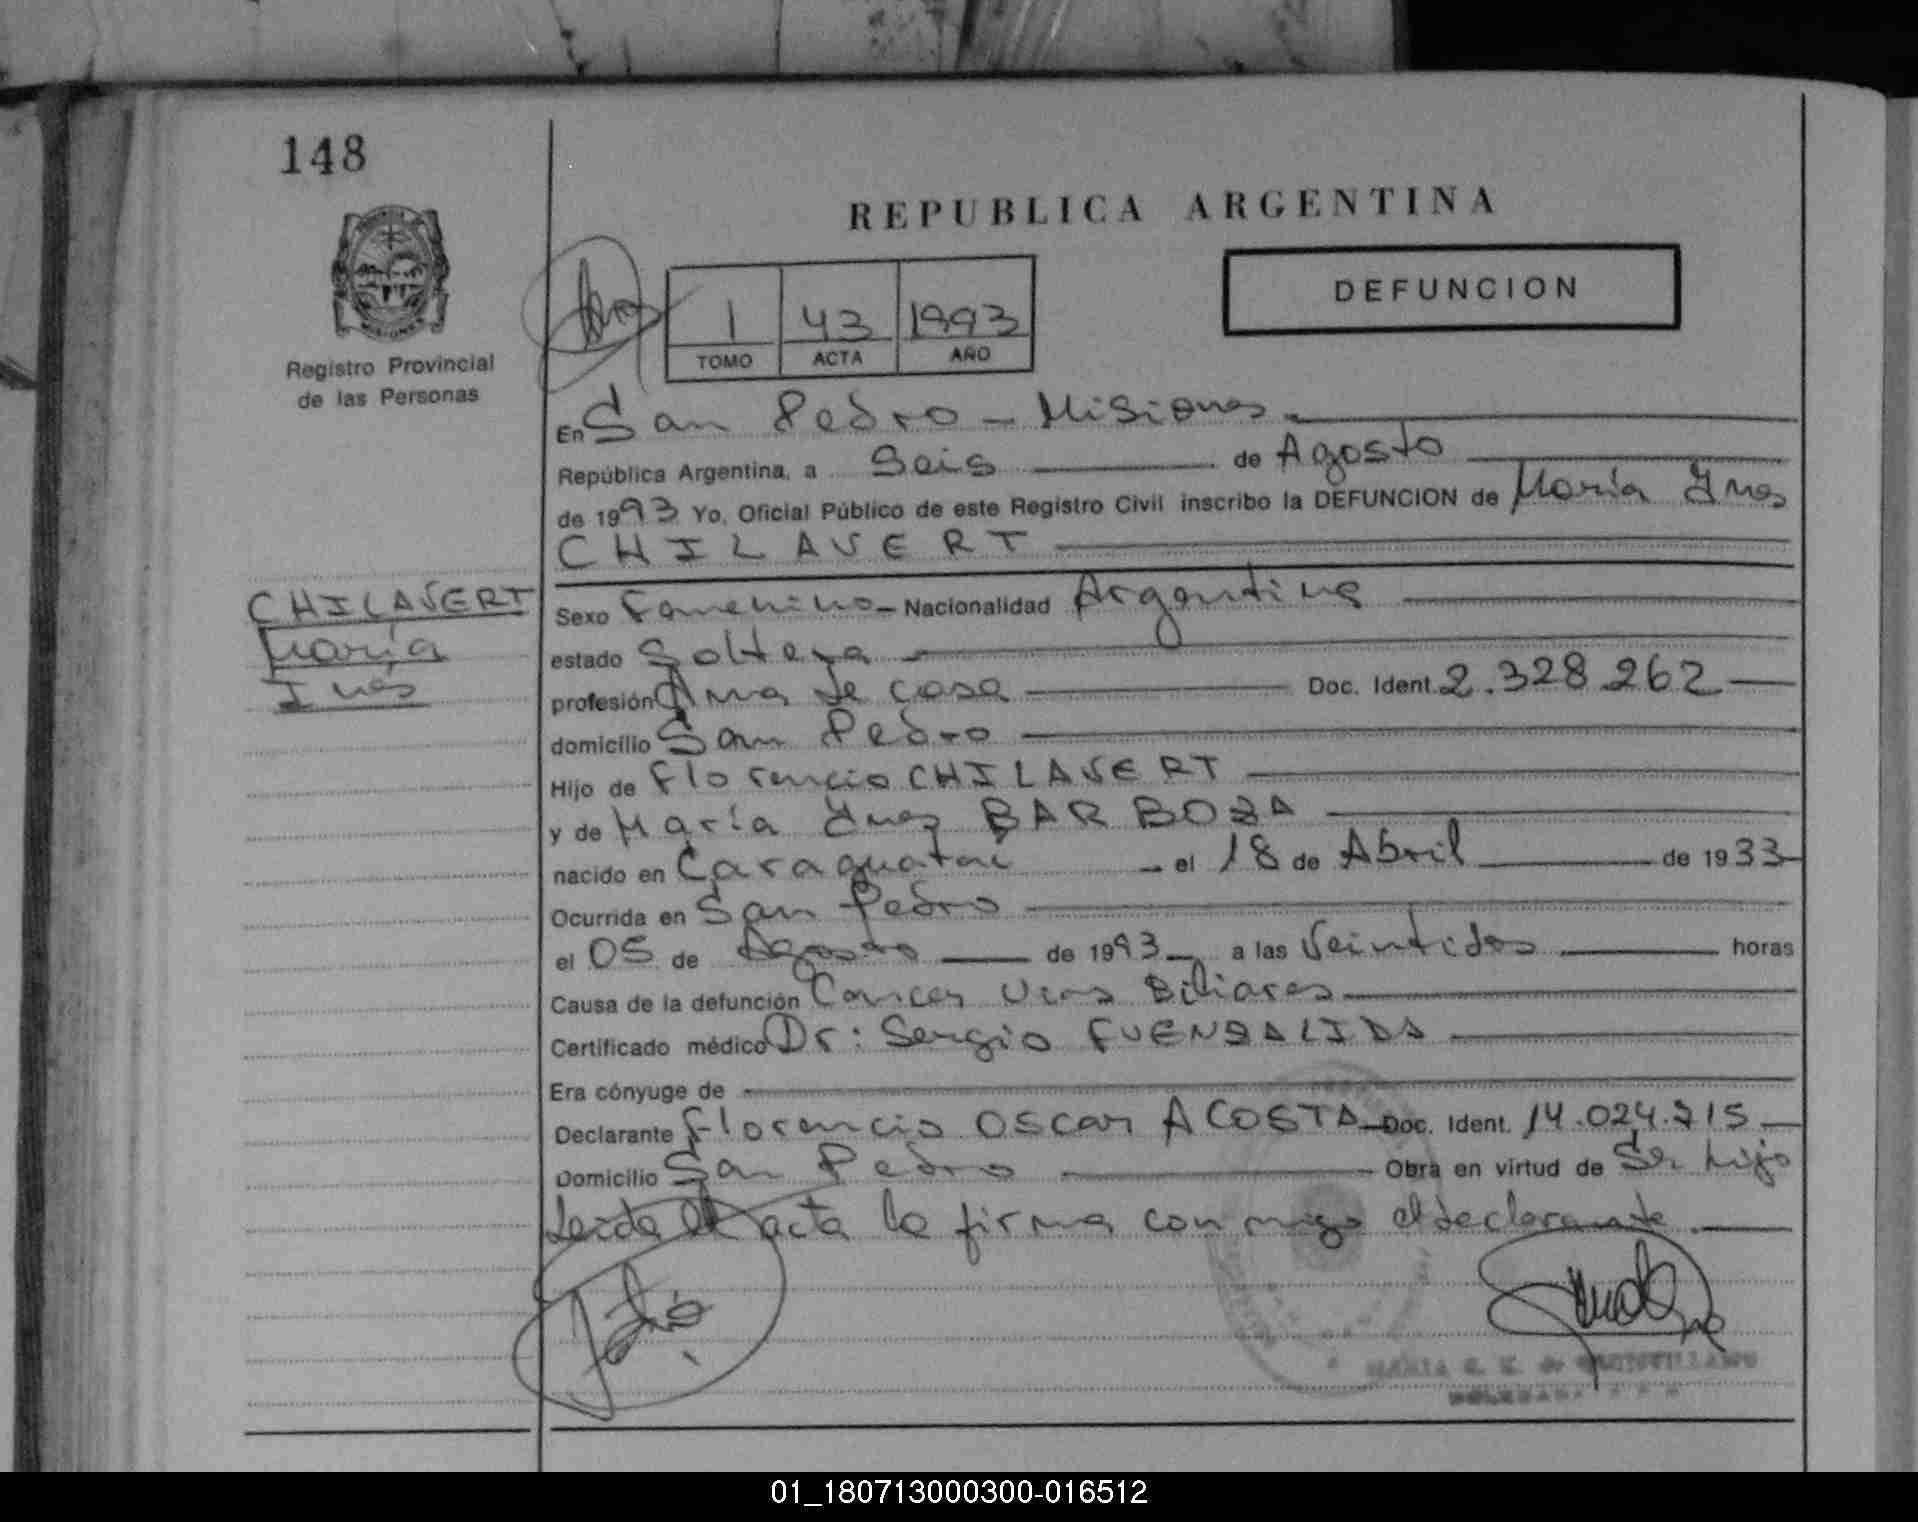 148
REPUBLICA ARGENTINA
DEFUNCION
1 43 1993
TOMO ACTA AÑO
Registro Provincial
de las Personas
En San Pedro - Misiones
República Argentina, a Seis de Agosto
de 1993 Yo, Oficial Público de este Registro Civil inscribo la DEFUNCION de María Ines
CHILAVERT
CHILAVERT
María
Inés
Sexo Femenino - Nacionalidad Argentina
estado Soltera
profesión Ama de casa Doc. Ident. 2.328.262
domicilio San Pedro
Hijo de Florencio CHILAVERT
y de María Ines BARBOZA
nacido en Caraguatay - el 18 de Abril de 1933
Ocurrida en San Pedro
el 05 de Agosto de 1993 a las Veintidos horas
Causa de la defunción Cancer Vias Biliares
Certificado médico Dr: Sergio FUENZALIDA
Era cónyuge de
Declarante Florencio Oscar ACOSTA Doc. Ident. 14.024.715
Domicilio San Pedro Obra en virtud de Ser hijo
Leida el acta la firma con migo el declarante.
MARIA
01_180713000300-016512